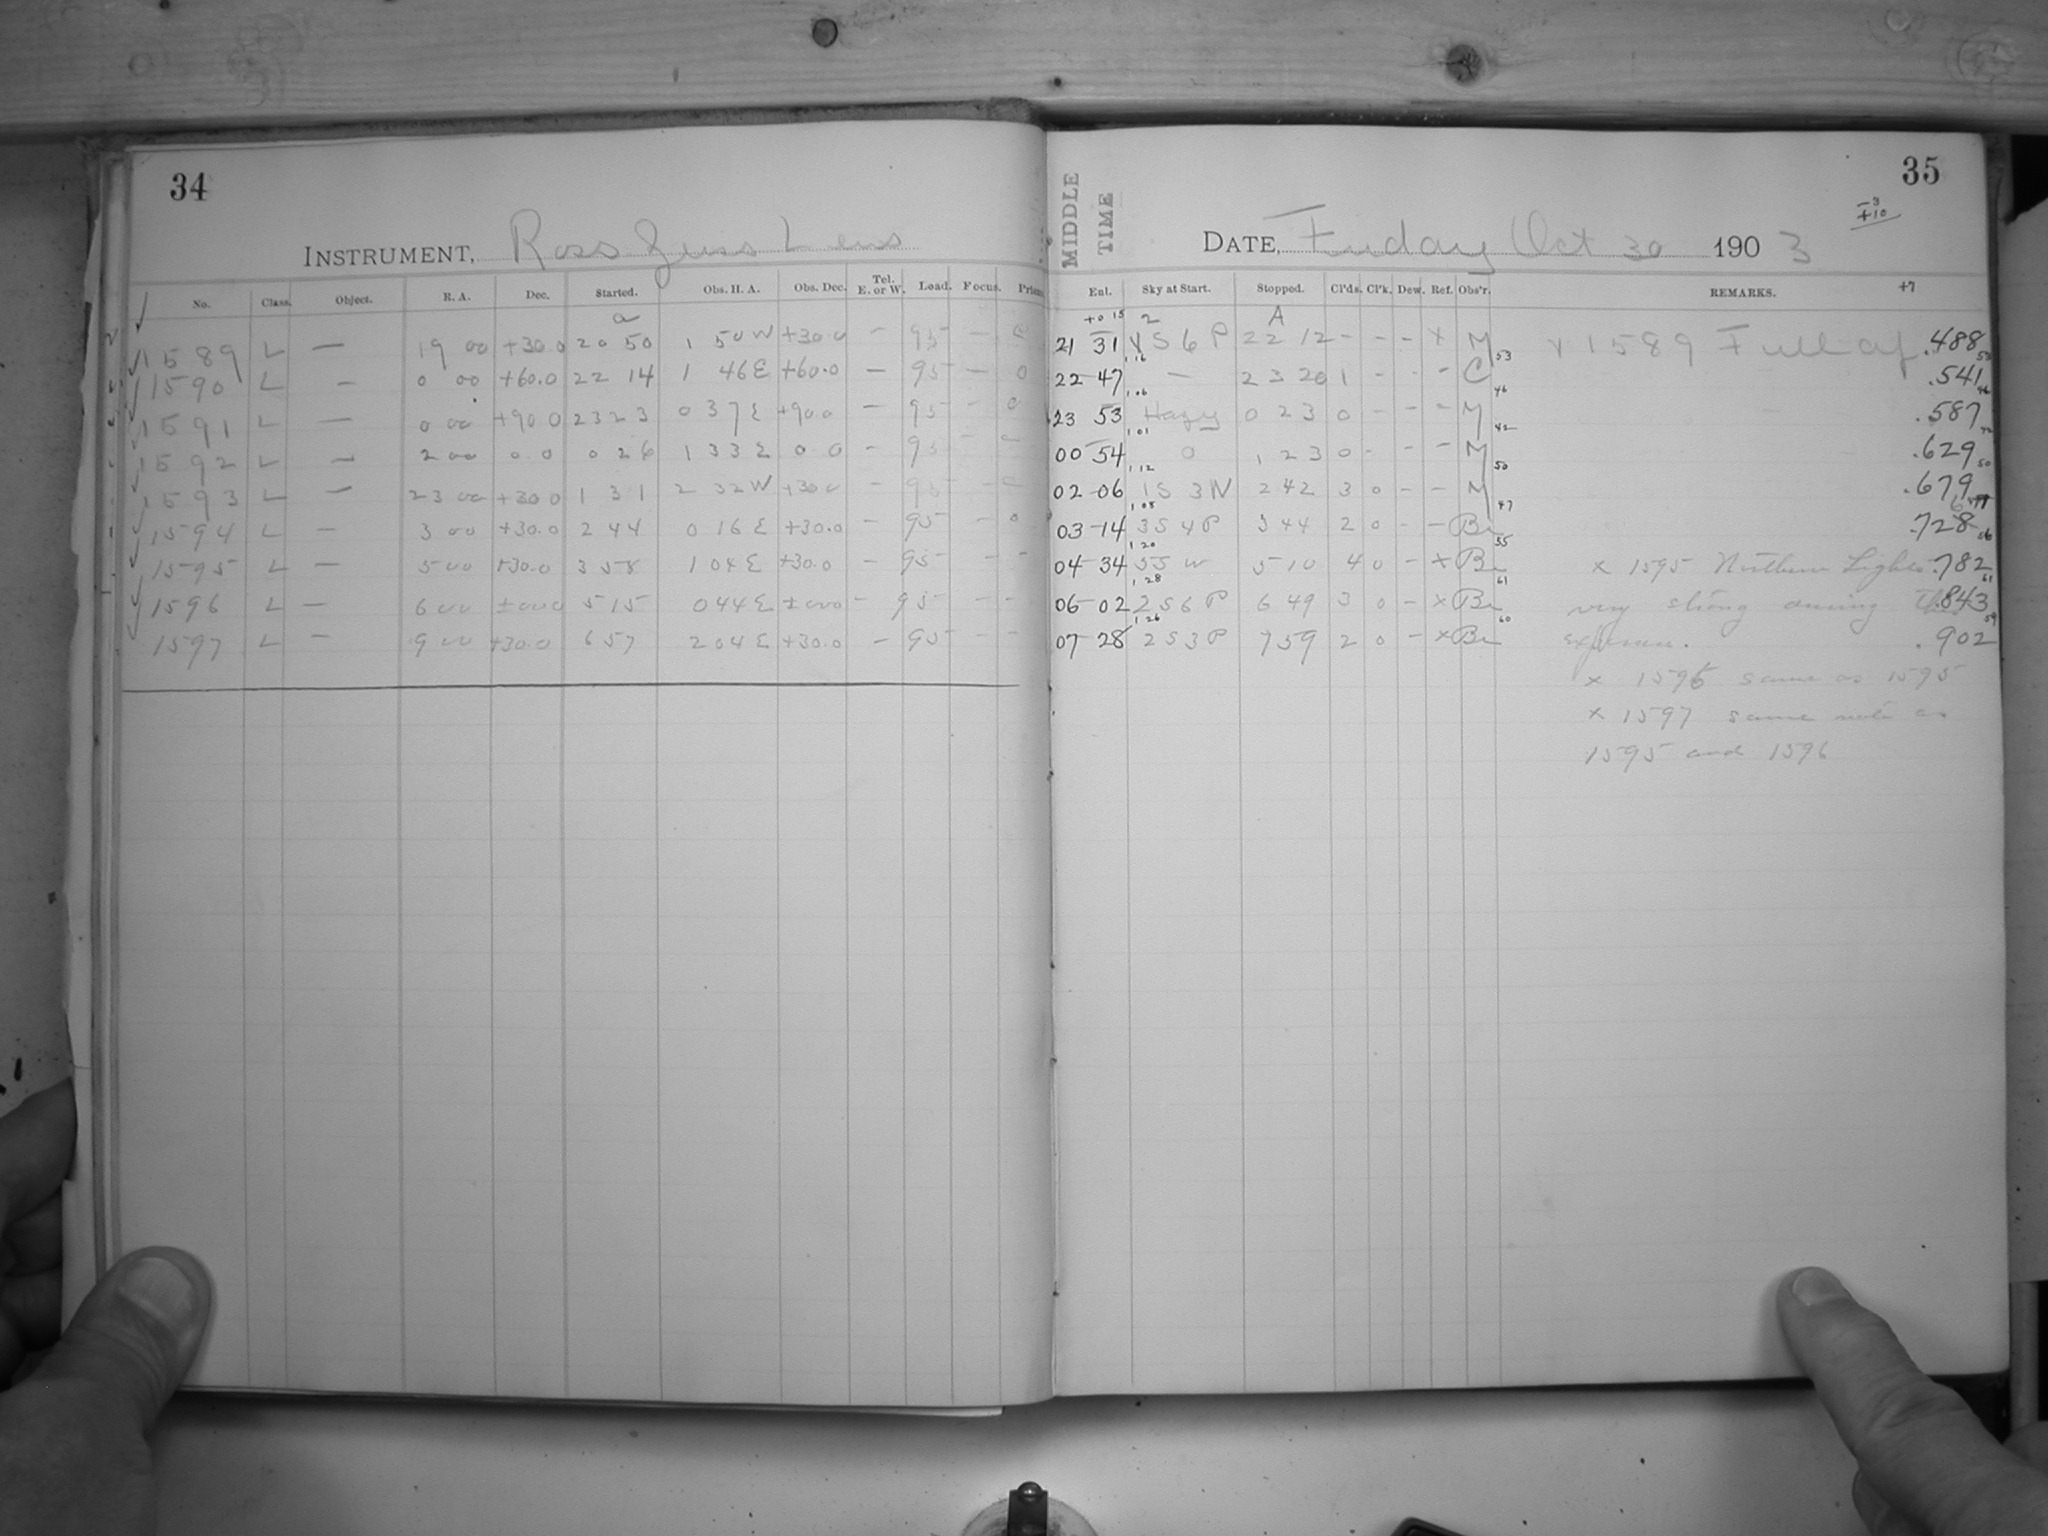 34
INSTRUMENT, Ross Zeiss Lens
No. Class. Object. R. A. Dec. Started. Obs. H. A. Obs. Dec. Tel. E. or W. Load. Focus.
a
1589 L — 19 00 +30.0 20 50 1 50 W +30.0 — 95 —
1590 L — 0 00 +60.0 22 14 1 46 E +60.0 — 95 — 0
1591 L — 0 00 +90 0 23 23 0 37 E +90.0 — 95 — 0
1592 L — 2 00 0.0 0 26 1 33 E 0 0 — 95 —
1593 L — 23 00 +30 0 1 31 2 32 W +30 0 — 95 —
1594 L — 3 00 +30.0 2 44 0 16 E +30.0 — 95 — 0
1595 L — 5 00 +30.0 3 58 1 04 E +30.0 — 95 — —
1596 L — 6 00 ±00 0 5 15 0 44 E ±00 0 — 95 — —
1597 L — 9 00 +30.0 6 57 2 04 E +30.0 — 95 — —
35
MIDDLE
TIME
-3
+10
DATE, Friday Oct 30 1903
Exl. Sky at Start. Stopped. Cl'ds. Cl'k. Dew. Ref. Obs'r. REMARKS. +7
+0 15 2 A
21 31 S 6 P 22 12 - - - x M 53 x 1589 Full of .488 53
1 16
22 47 — 23 20 1 - - - C 46 .541 46
1 06
23 53 Hazy 0 23 0 - - - M 42 .587 42
1 01
00 54 0 1 23 0 - - - M 50 .629 50
1 12
02 06 1S 3 N 2 42 3 0 - - M 47 .679
1 08
03 14 3S 4 P 3 44 2 0 - - Br 55 .728 56
1 20
04 34 5S W 5 10 4 0 - x Br 61 x 1595 Northern Lights .782 61
1 28
06 02 2 S 6 P 6 49 3 0 - x Br 60 very strong during the .843 59
1 26
07 28 2 S 3 P 7 59 2 0 - x Br exposure. .902
x 1596 same as 1595
x 1597 same note as
1595 and 1596